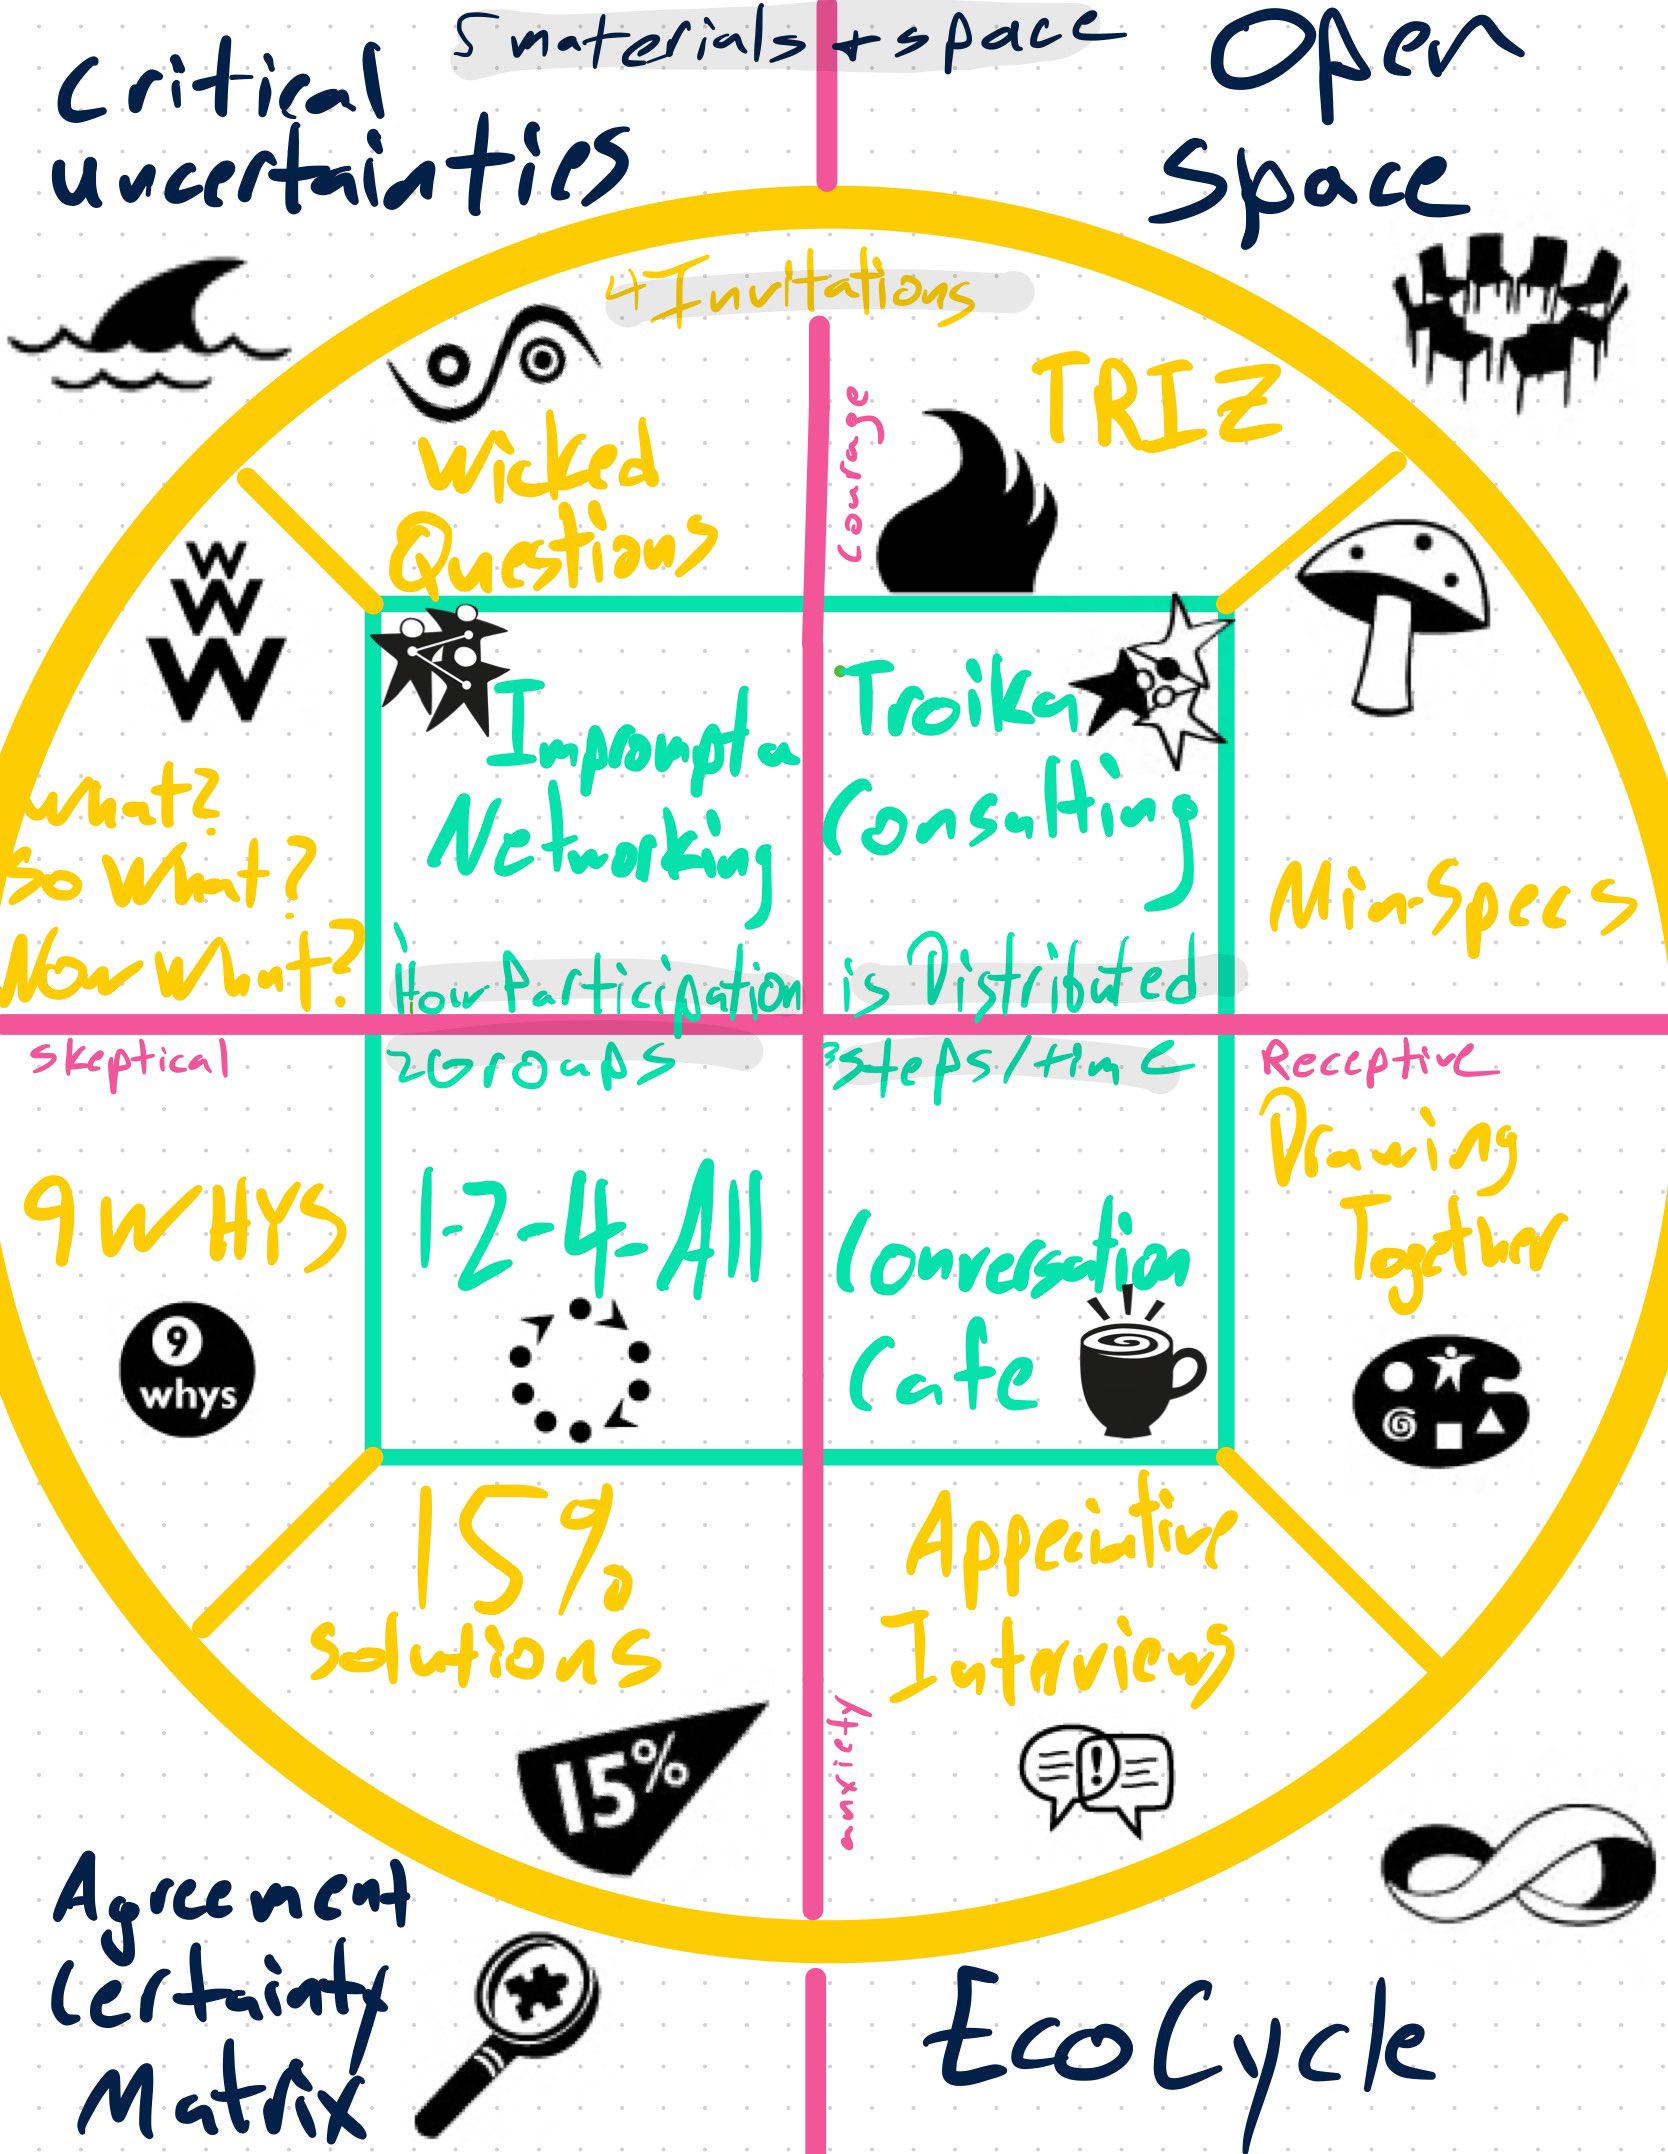 5 materials + space
Critical
uncertainties
Open
Space
4 Invitations
Wicked
Questions
courage
TRIZ
W
W
W
What?
So What?
Now What?
Impromptu
Networking
Troika
Consulting
Min-Specs
How Participation is Distributed
Skeptical
2 Groups
3 Steps/time
Receptive
9 WHYS
9
whys
1-2-4-All
Conversation
Cafe
Drawing
Together
15%
Solutions
15%
Appeciative
Interviews
!
anxiety
Agreement
Certainty
Matrix
EcoCycle